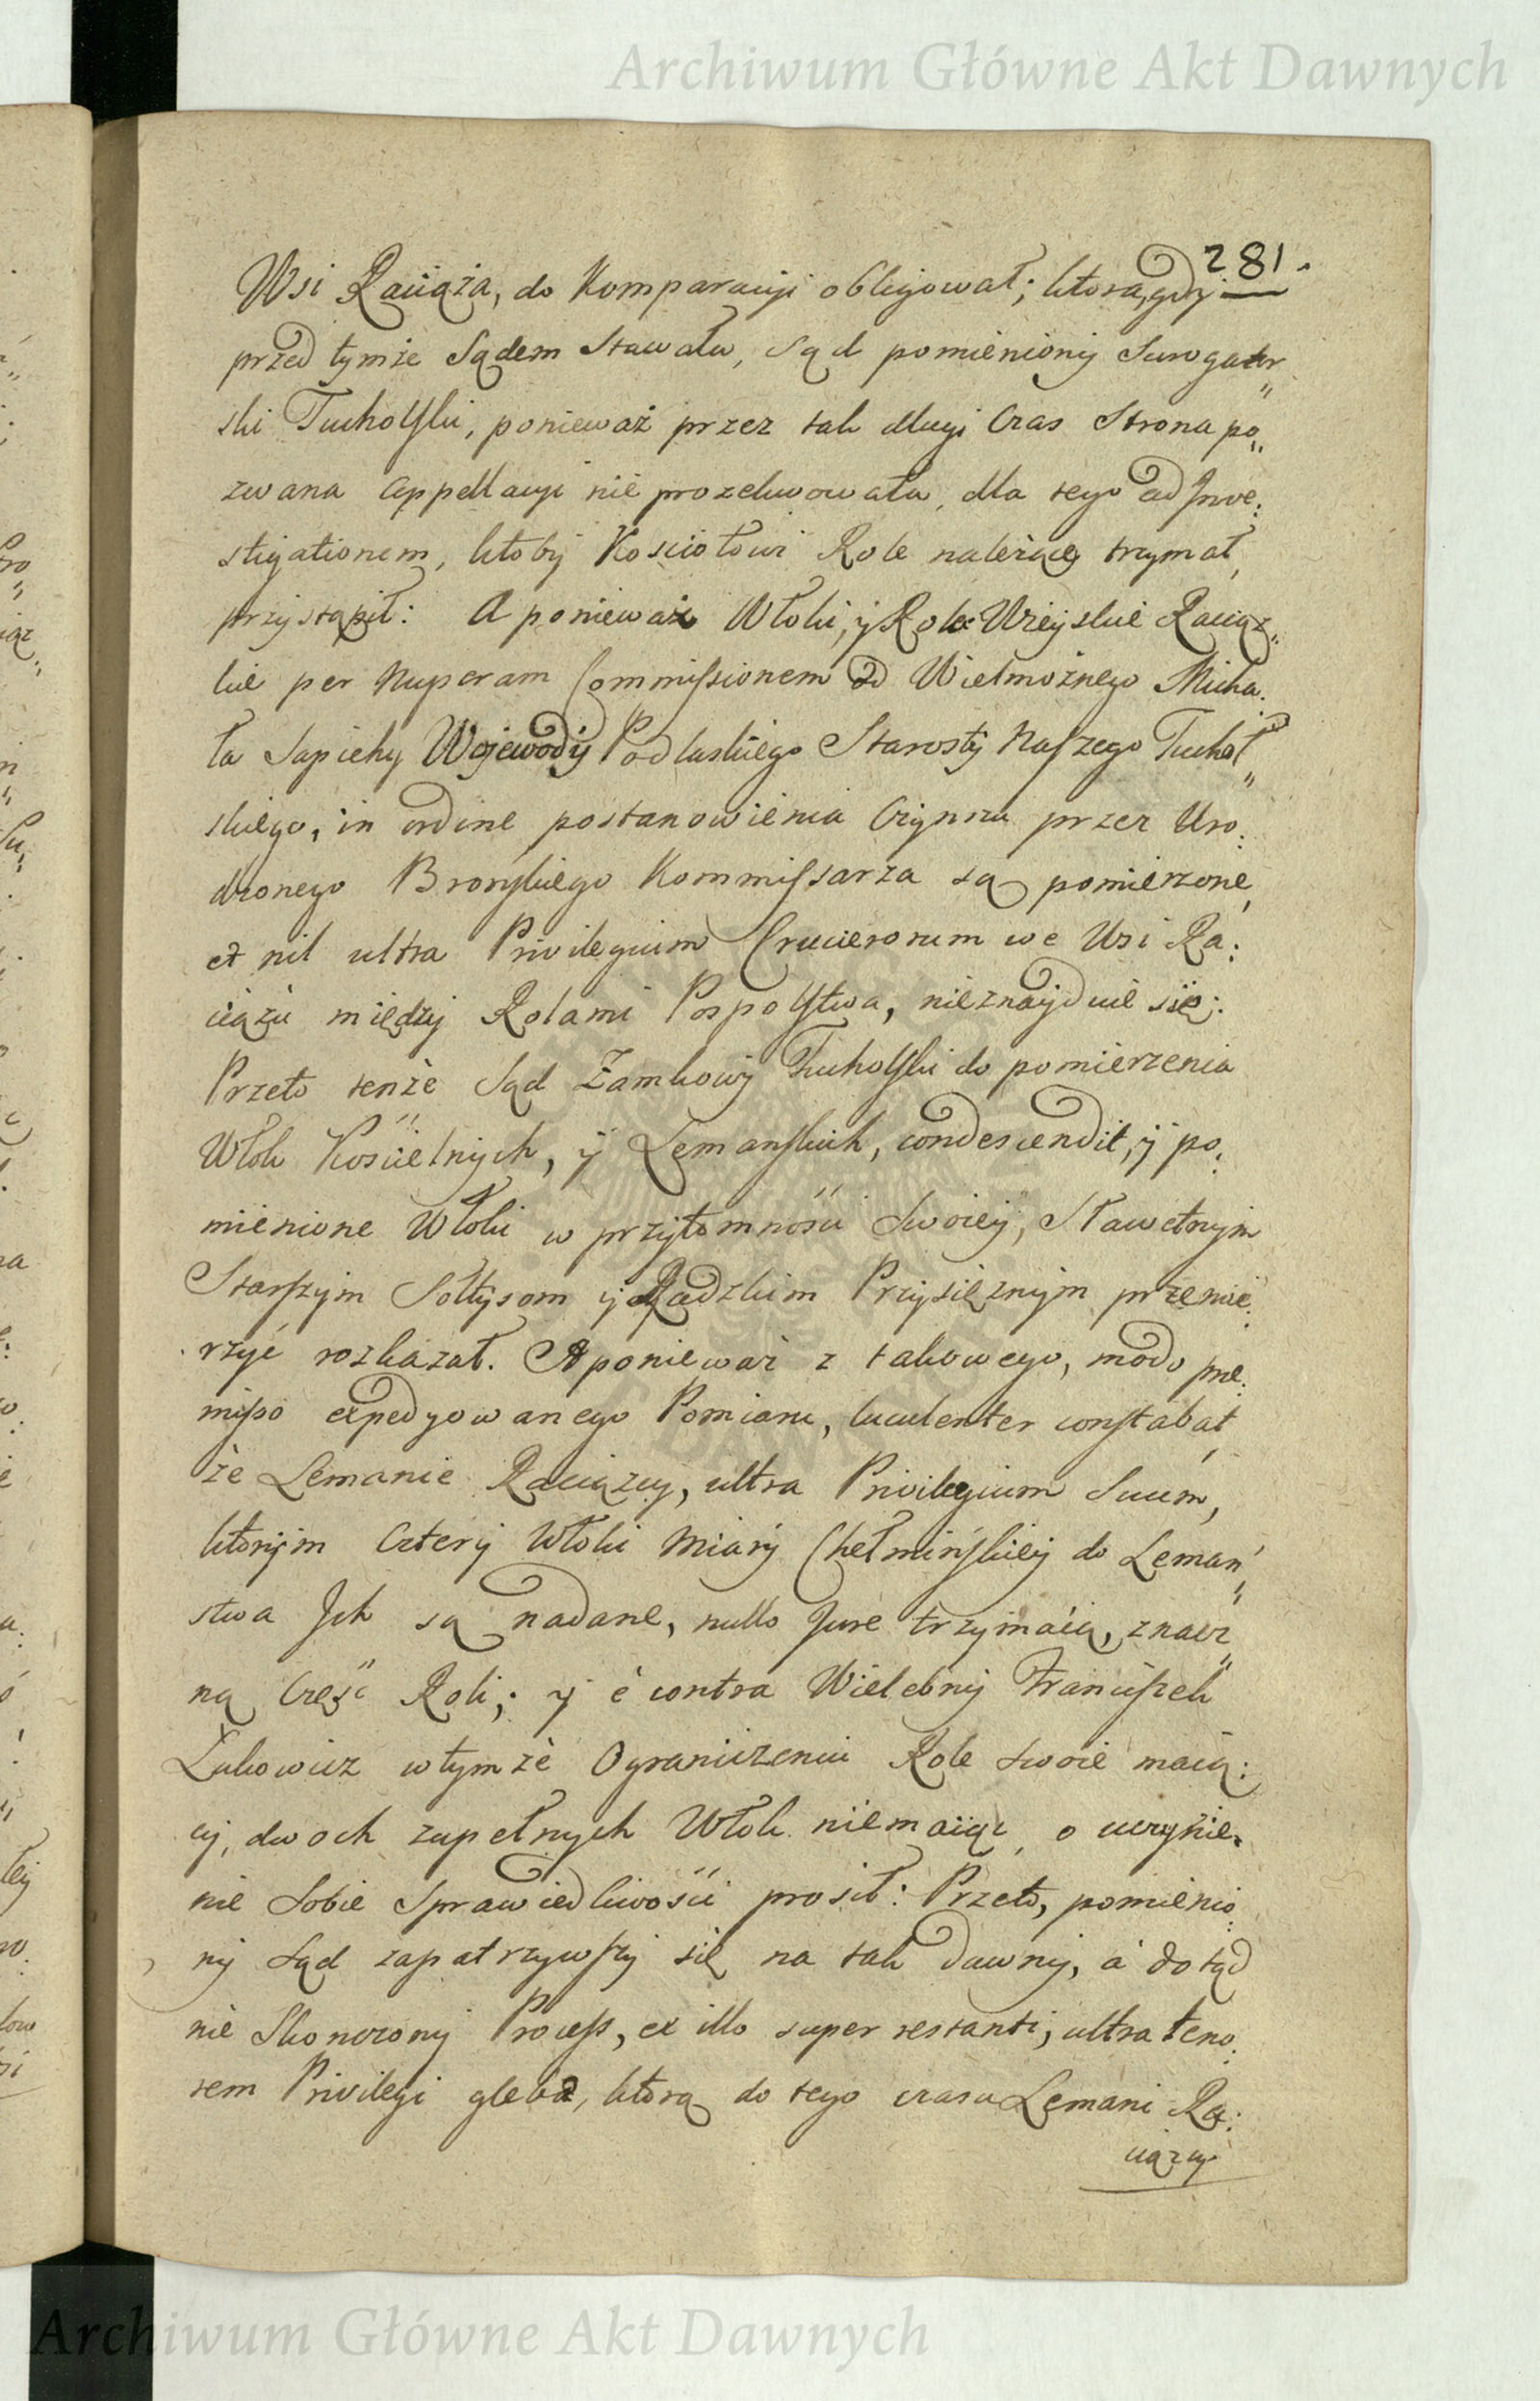 Archiwum Główne Akt Dawnych
281.
Wsi Raciąża, do Komparacyi obligował; ktora gdy
przed tymże Sądem Stawała, Sąd pomieniony Surogator
ski Tucholski, ponieważ przez tak długi Czas Strona po„
zwana Appellacyi nie prozekwowała, dla tego ad Inve:
stigationem, ktoby Kosciołowi Role należące trzymał,
przystąpił: A ponieważ Włoki, y Role Wieyskie Raciąz„
kie per nuperam Commissionem od Wielmożnego Micha:
ła Sapiehy Wojewody Podlaskiego Starosty Naszego Tuchol„
skiego, in ordine postanowienia Czynszu przez Uro:
dzonego Bronskiego Kommissarza są pomierzone,
et nil ultra Privilegium Cruciferorum we Wsi Ra:
ciążu między Rolami Pospolstwa, nieznayduie się:
Przeto tenże Sąd Zamkowy Tucholski do pomierzenia
Włok Kościelnych, y Lemanskich, condescendit, y po:
mienione Włoki w przytomności Swoiey, Sławetnym
Starszym Sołtysom y Radzkim Przysięznym przemie:
rzyć rozkazał. A ponieważ z takowego, modo pre:
misso expedyowanego Pomiaru, luculenter constabat,
że Lemanie Raciązcy, ultra Privilegium Suum,
ktorym Cztery Włoki Miary Chełminskiey do Leman„
stwa Jch są nadane, nullo Jure trzymaią, znacz„
ną Część Roli; y è contra Wielebny Franciszek
Lukowicz w tymże Ograniczeniu Role swoie maią:
cy, dwoch zupełnych Włok niemaiąc, o uczynie„
nie Sobie Sprawiedliwości prosił: Przeto, pomienio:
ny Sąd zapatrzywszy się na tak dawny, á dotąd
nie Skonczony Process, ex illo super restanti, ultra teno:
rem Privilegi gleba, ktorą do tego czasu Lemani Ra:
ciązcy
Archiwum Główne Akt Dawnych